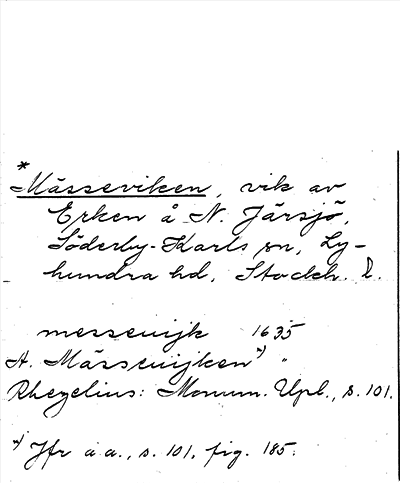 *Mässeviken, vik av
Erken å N. Järsjö,
Söderby-Karls sn, Ly-
hundra hd, Stockh. l.
messevijk 1635
A. Mässevijken *) "
Rhezelius: Monum. Upl., s. 101.
*) Jfr a.a., s. 101, fig. 185.